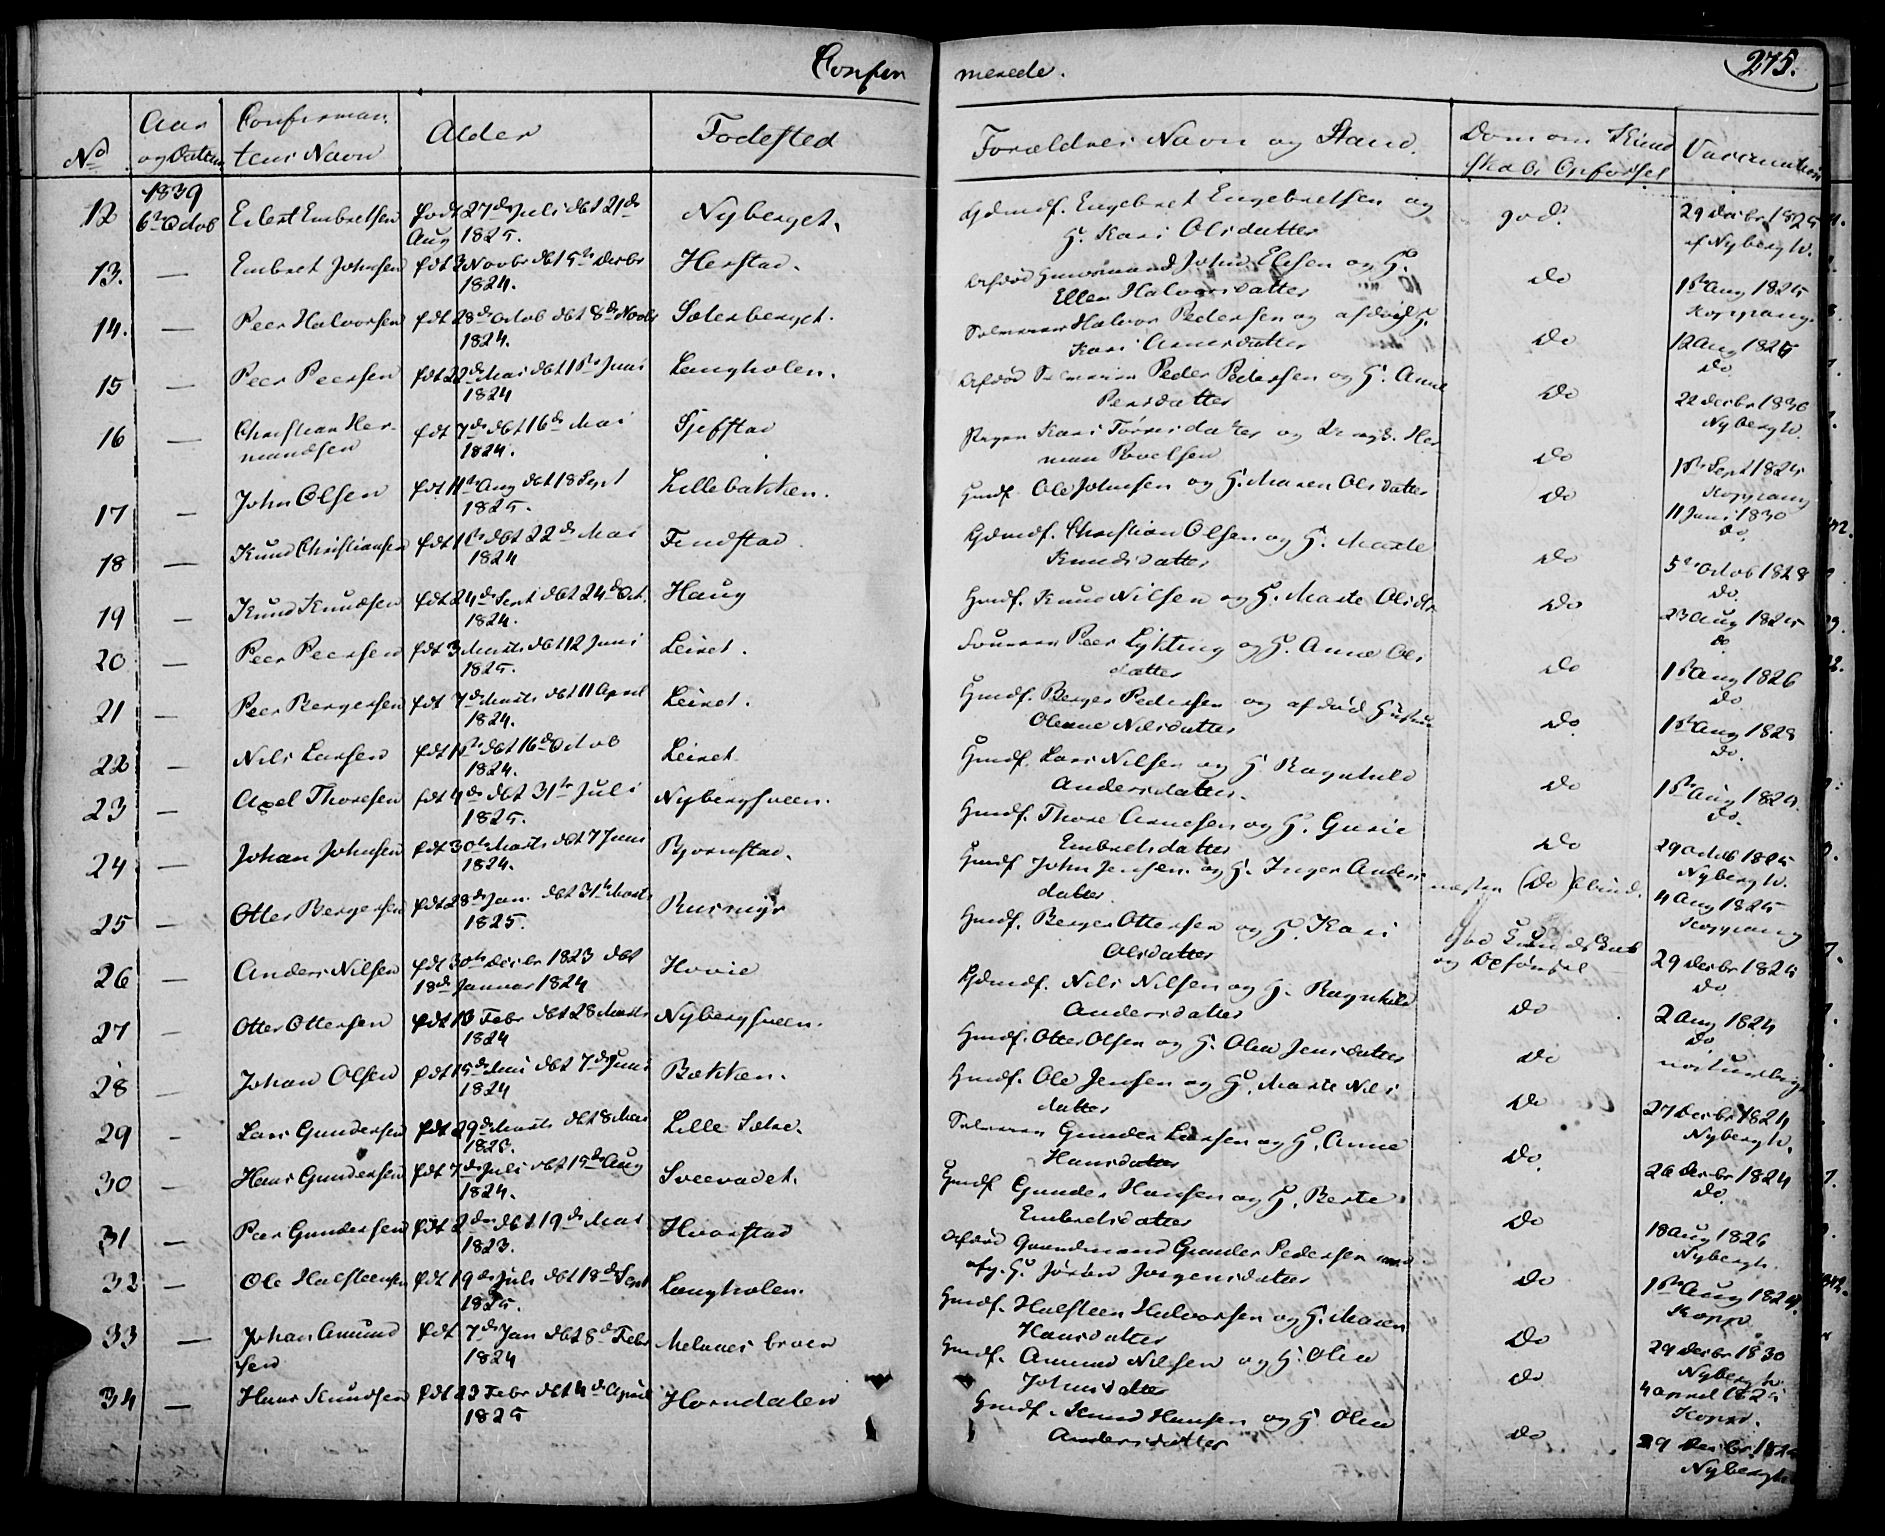 Confir
merede.
275.
No
Aar og Datum
Confirman tens Navn
Alder
Fodested
Forældres Navn og Stand.
Dom om Kund skab Opførsel
Vaccination
1839
12 6te Octob Eilert Embretsen født 27de Juli døbt 21de Aug 1825. Nyberget.
Gdmdf. Engebret Engebretsen og H. Kari Olsdatter god. 29 Decbr 1825 af Nybergh.
13. — Embret Johnsen fdt 3 Novbr dbt 5te Decbr 1824. Herstad.
Afdød Huusmand John Elesen og H. Ellen Halvorsdatter Do 1ste Aug 1825 Koppang.
14. — Peer Halvorsen fdt 28de Octob dbt 8de Novbr 1824. Sæterberget.
Halvor Pedersen og afdød H. Kari Arnesdatter Do 12 Aug 1825 Do
15 — Peer Peersen fdt 22de Mai dbt 1ste Juni 1824 Langholen.
Afdød Peder Pedersen og H. Anne Persdatter Do 22 Decbr 1830 Nybergh.
16 — Christian Hermandsen fdt 7de dbt 16de Mai 1824. Sjefstad
Pigen Kari Torersdatter og Herman Povelsen Do 1ste Sept 1825 Koppang
17 — John Olsen fdt 11te Aug dbt 18 Sept 1825. Lillebakken.
Hmdf. Ole Johnsen og H. Maren Olsdatter Do 11 Juni 1830 Do.
18 — Knud Christiansen fdt 1ste dbt 22de Mai 1824 Findstad
Gdmdf. Christian Olsen og H. Marte Knudsdatter Do 5te Octob 1828 Do.
19 — Knud Knudsen fdt 24de Sept dbt 24de Oct. 1824. Haug
Hmdf. Knud Nilsen og H. Marte Olsdtr Do 23 Aug 1825 Do
20 — Peer Peersen fdt 3 Marts dbt 12 Juni 1825. Leiret.
Peer Lykting og H. Anne Olsdatter Do 1ste Aug 1826 Do
21 — Peer Bergersen fdt 7de Marts dbt 11 April 1824. Leiret.
Hmdf. Berger Pedersen og afdød Hustru Oleane Nilsdatter Do 1ste Aug 1828 Do.
22 — Nils Larsen fdt 1ste dbt 16de Octob 1824. Leiret.
Hmdf. Lars Nilsen og H. Ragnhild Andersdatter. Do 1ste Aug 1829. Do.
23 — Axel Thoresen fdt 4de dbt 31te Juli 1825. Nybergsveen.
Hmdf. Thore Arnesen og H. Gurie Embretsdatter Do 29 Octob 1825 Nybergh.
24. — Johan Johnsen fdt 30te Marts dbt 7 Juni 1824. Bjørnstad.
Hmdf John Jensen. og H. Inger Andersdatter. næsten (Do) blind. 4 Aug 1825 Koppang
25 — Otter Bergersen fdt 28de Jan. dbt 31te Marts 1825. Rusmyr
Hmdf. Berger Ottersen og H. Kari Olsdatter god Kundskab og Opførsel 29 Decbr 1825 Do
26 — Anders Nilsen fdt 30te Decbr 1823 dbt 18de Januar 1824 Hovie
Gdmdf. Nils Nilsen og H. Ragnhild Andersdatter Do 2 Aug 1824 Do
27 — Otter Ottersen fdt 13 Febr dbt 28 Marts 1824 Nybergsveen.
Hmdf. Otter Olsen og H. Olea Jensdatter Do naturlige
28 — Johan Olsen fdt 15de Mai dbt 7de Juni 1824 Bækken.
Hmdf. Ole Jensen og H. Marte Nilsdatter Do 27 Decbr 1824 Nybergh.
29 — Lars Gundersen fdt 29de Marts dbt 8 Mai 1823. Lille Sætre.
Gunder Larsen og H. Anne Hansdatter Do. 26 Decbr 1824 Do.
30 — Hans Gundersen fdt 7de Juli dbt 15de Aug 1824. Sveevadet.
Hmdf Gunder Hansen og H. Berte Embretsdatter Do 18 Aug 1826 Nybergh.
31 — Peer Gundersen fdt 2den dbt 19de Mai 1823. Hvorstad
Afdød Gaardmand Gunder Pedersen og H. Jøran Jørgensdatter Do 1ste Aug 1824. Kopp.
32 — Ole Halsteensen fdt 19de Juli dbt 18de Sept 1825. Langholen.
Hmdf. Halsteen Halvorsen og H. Maren Hansdatter Do 29 Decbr 1830 Nybergh.
33 — Johan Amundsen fdt 7de Jan dbt 8de Febr 1824 Melnæs broen
Hmdf. Amund Nilsen og H. Olea Johnsdatter Do 4 april 1825 Kopp.
34 — Hans Knudsen fdt 23 Febr dbt 4de April 1825 Horndalen
Hmdf. Knud Hansen og H. Olea Andersdatter Do 29 Decbr 1825 Nybergh.